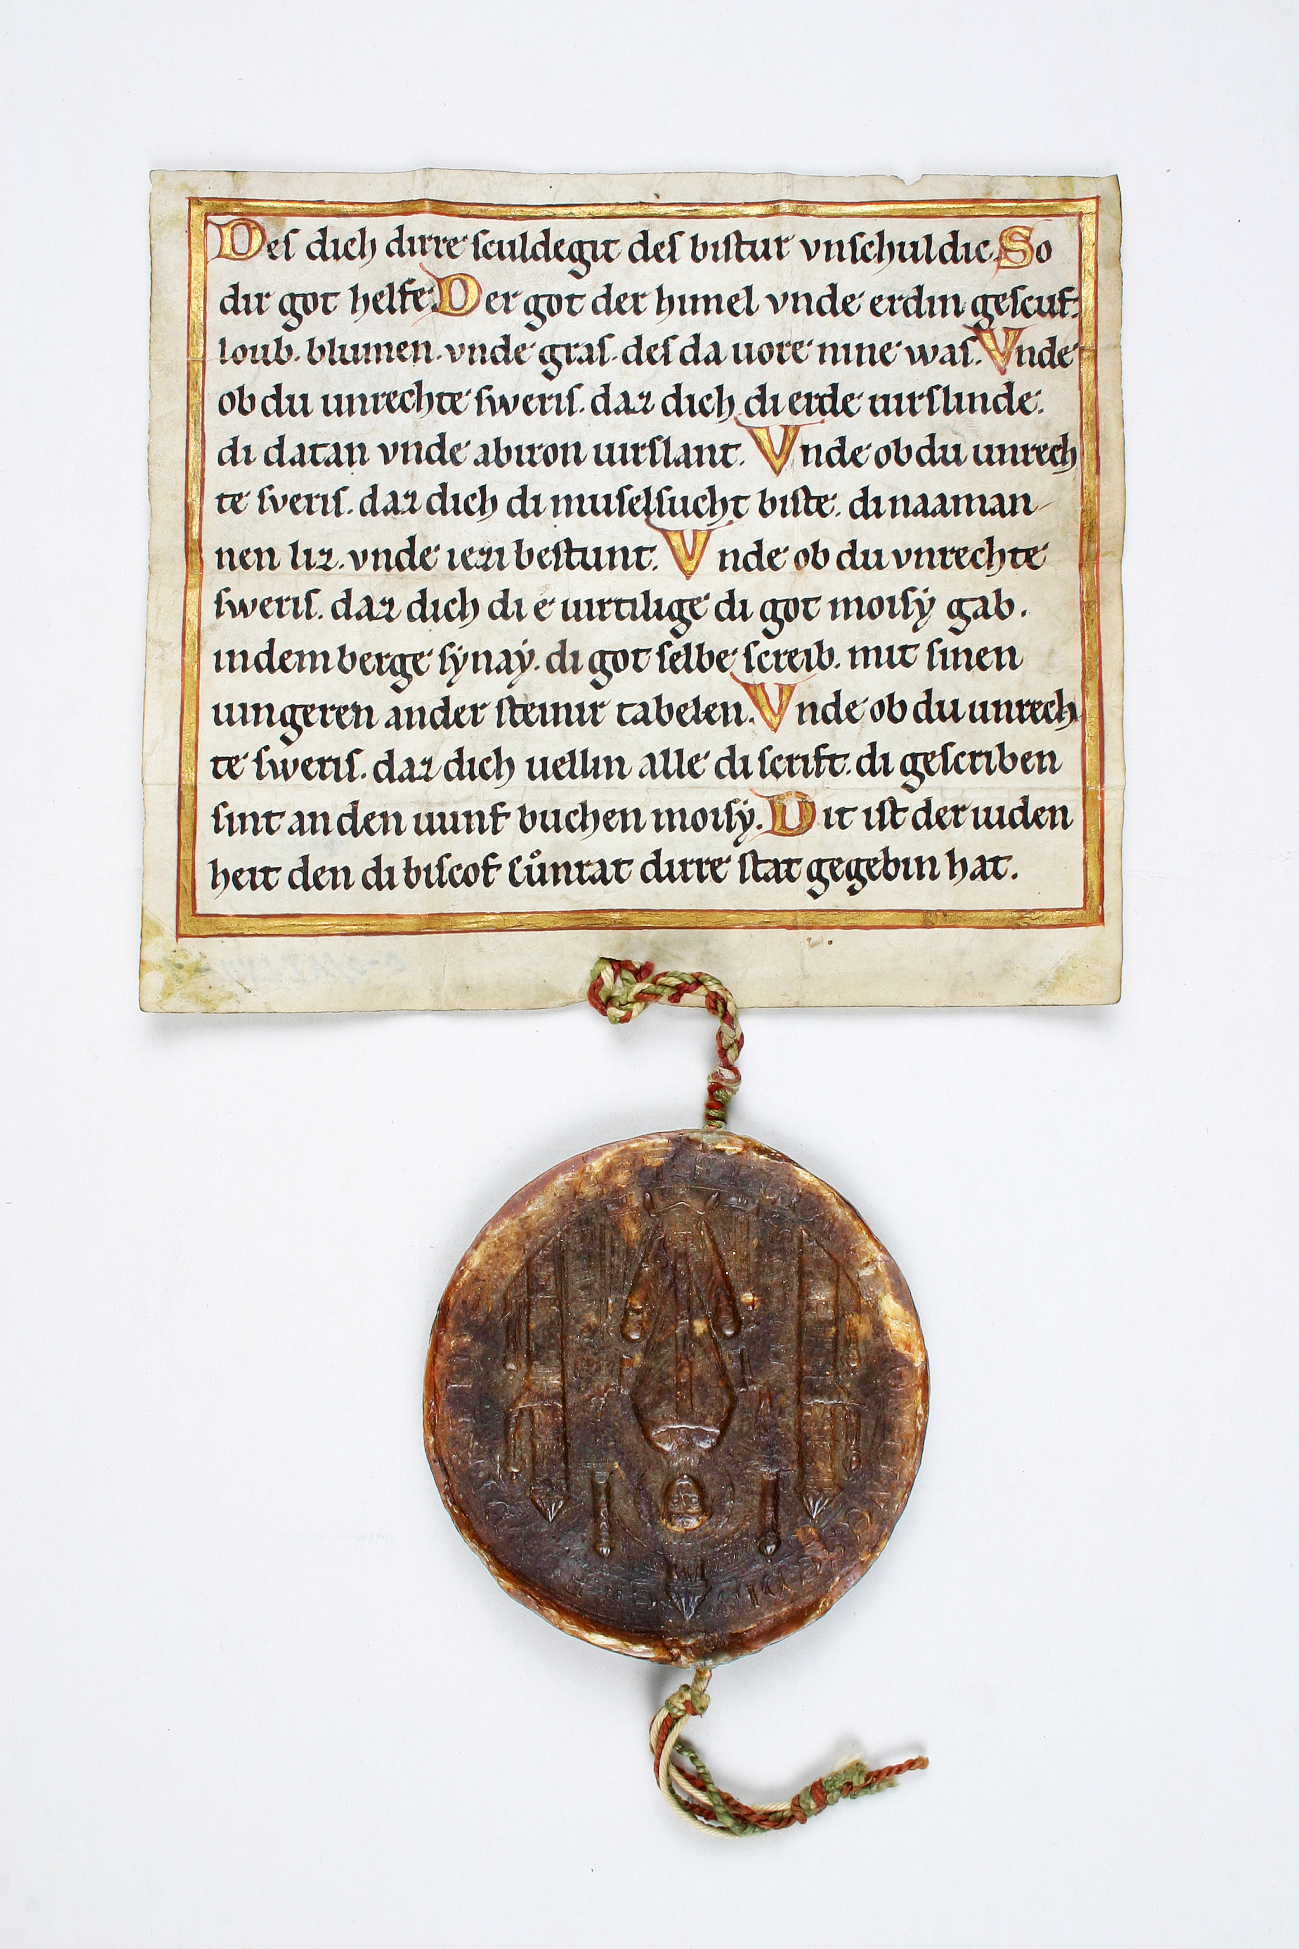 Des dich dirre sculdegit des bistur vnschuldic. So
dir got helfe. Der got der himel vnde erdin gescuf.
loub. blumen. vnde gras. des da uore nine was. Vnde
ob du unrechte sweris. daz dich di erde uirslinde.
di datan vnde abiron uirslant. Vnde ob du unrech
te sveris. daz dich di muselsucht biste. di naaman
nen liz. vnde iezi bestunt. Vnde ob du vnrechte
sweris. daz dich di e uirtilige di got moisÿ gab.
in dem berge sÿnaÿ. di got selbe screib. mit sinen
uingeren an der steinir tabelen. Vnde ob du unrech
te sweris. daz dich uellin alle di scrift. di gescriben
sint an den uunf buchen moisÿ. Dit ist der iuden
heit den di biscof cůnrat dirre stat gegebin hat.